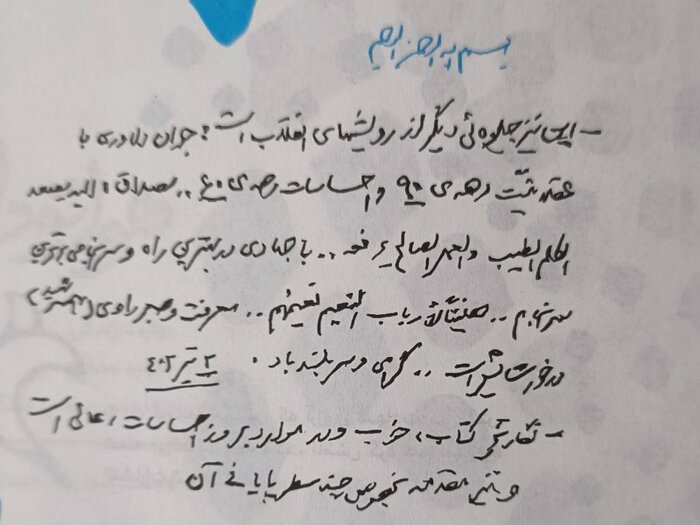 بسم الله الرحمن الرحیم
- این نیز جلوه‌ئی دیگر از رویشهای انقلاب است: جوان دلاوری با
عقد نیّت دهه‌ی ۹۰ و احساسات دهه‌ی ۶۰.. مصداق: الیه یصعد
الکلم الطیب والعمل الصالح یرفعه.. با جهادی در بهترین راه و سرانجامی بهترین
سرانجام.. هنیئاً لارباب النعیم نعیمهم.. معرفت و صبر راوی (همسر شهید)
درخور تبریک است.. گرامی و سربلند باد. ۲ تیر ۴۰۲
- نگارش کتاب، خوب و در موارد بروز احساسات، عالی است
و نیز مقدمه بخصوص چند سطر پایانی آن